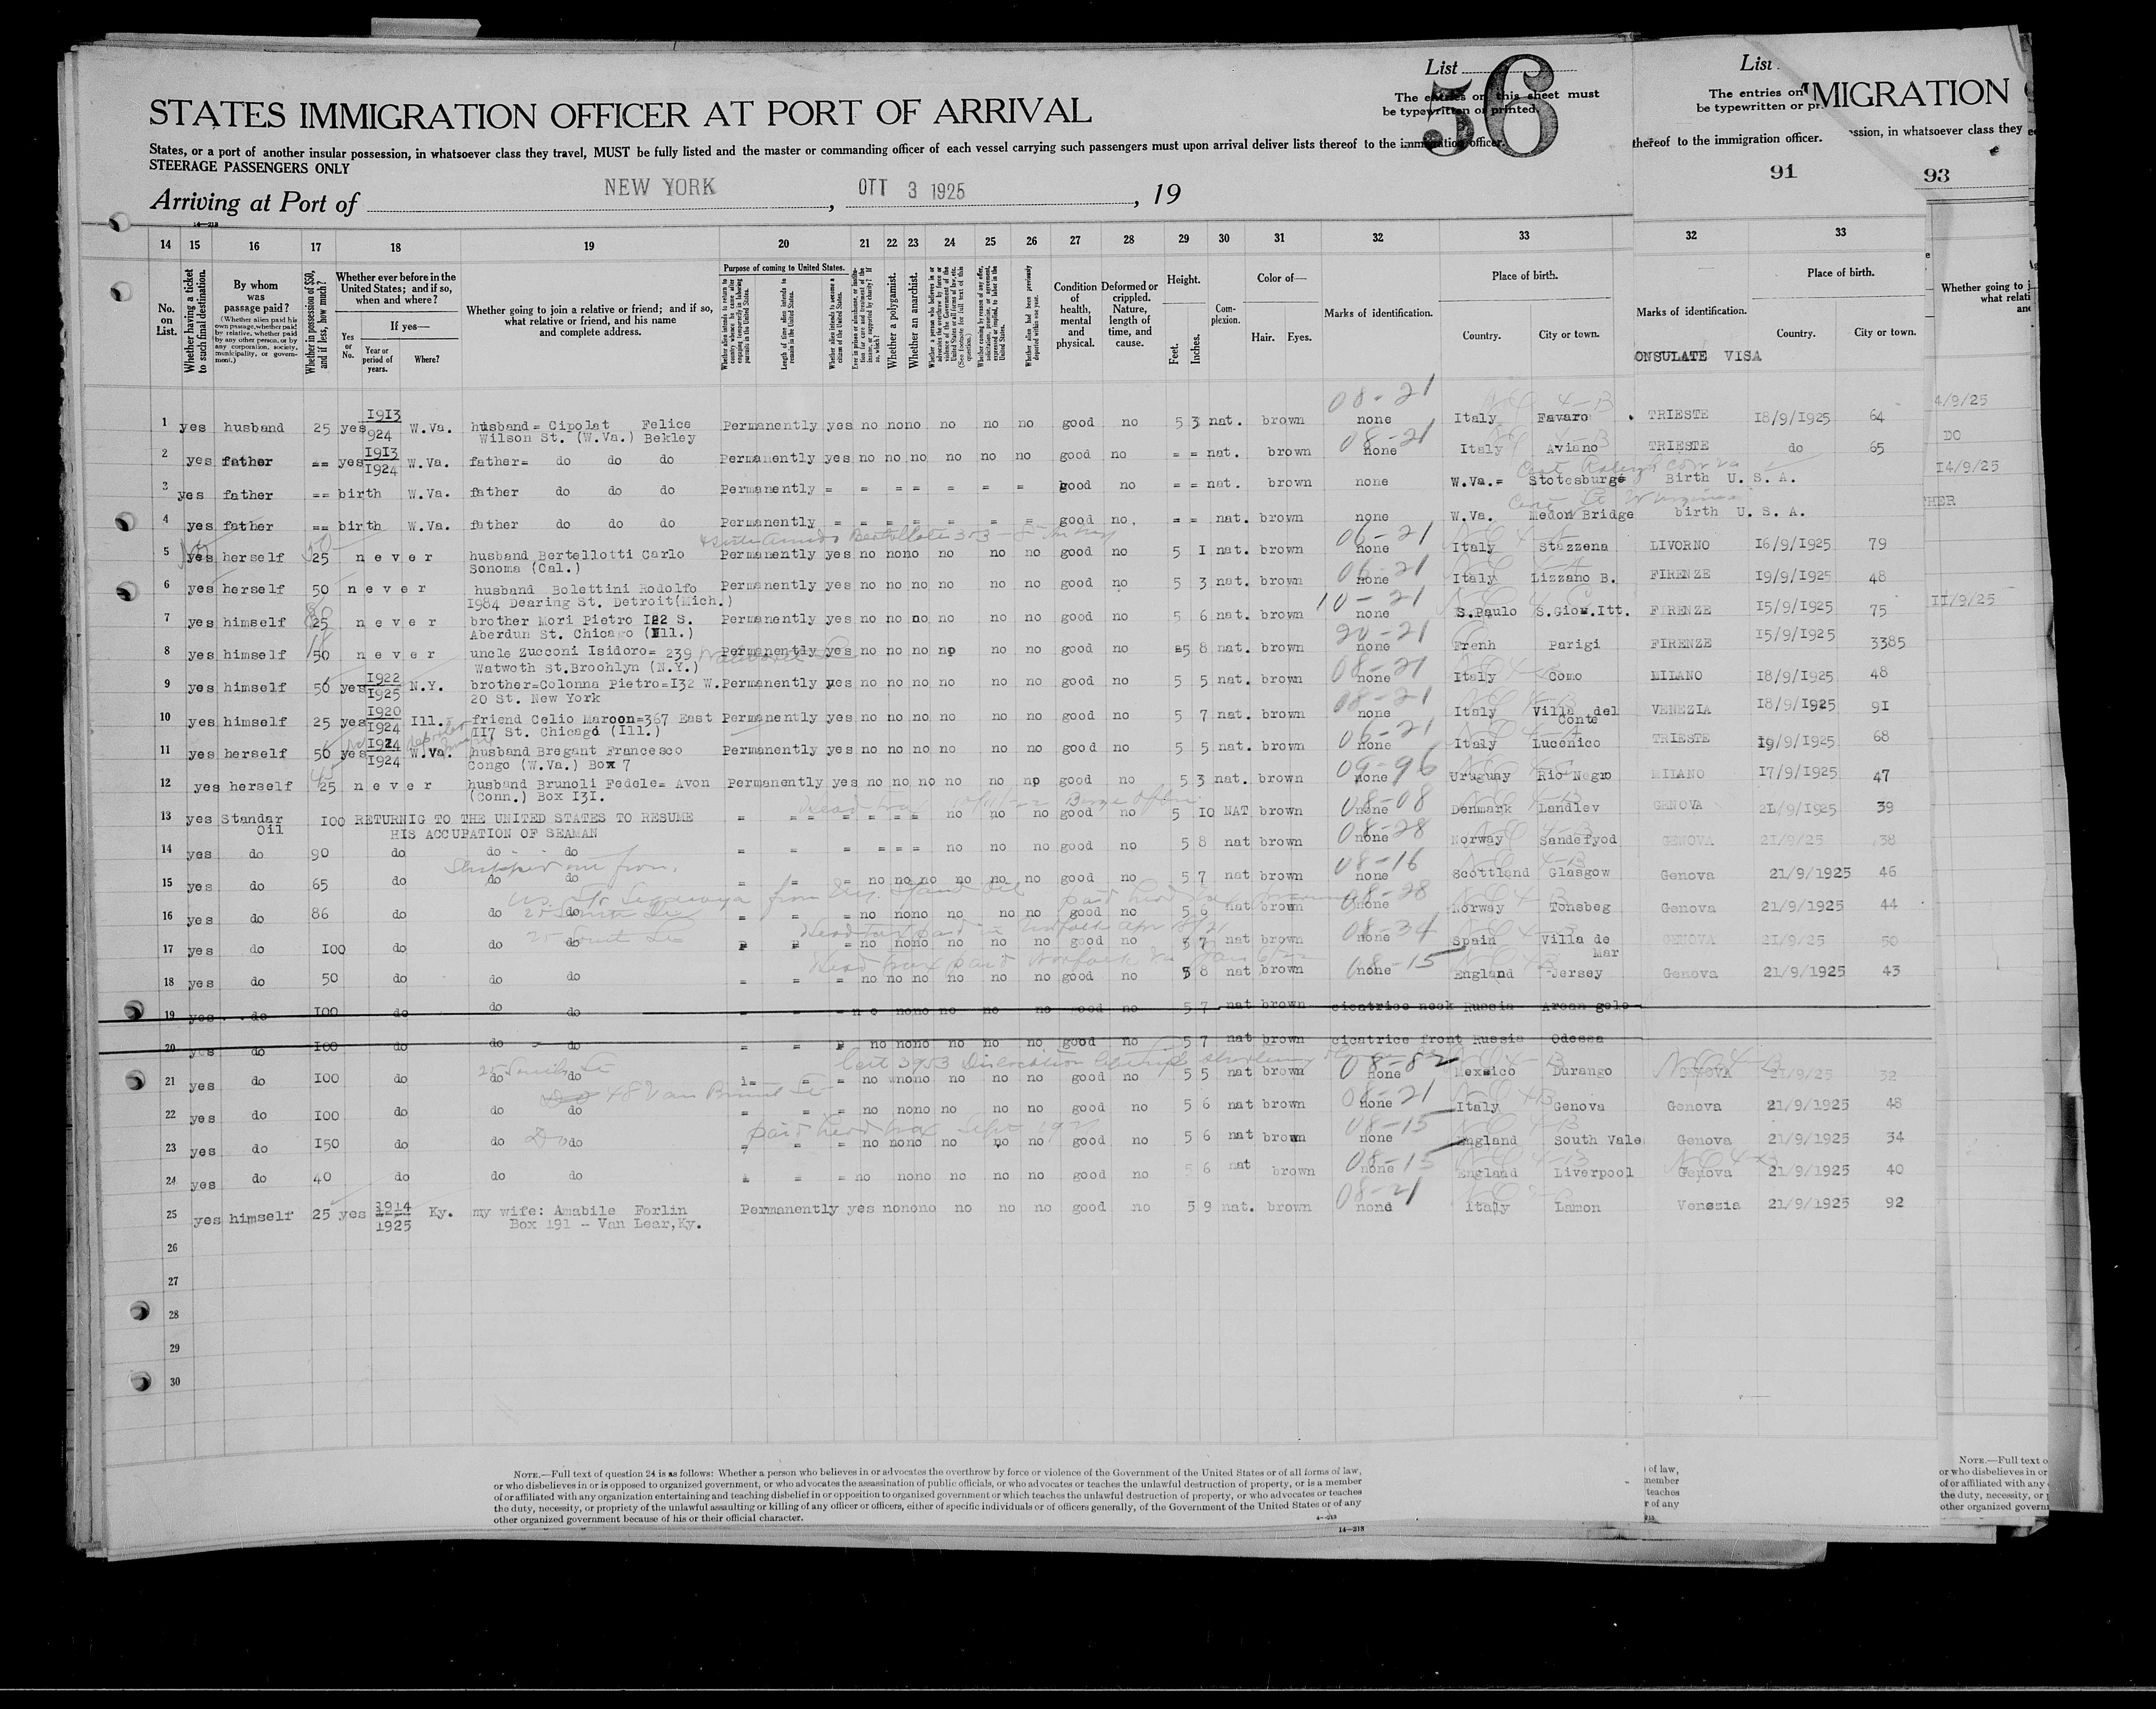 List
56
The entries on this sheet must
be typewritten or printed.
STATES IMMIGRATION OFFICER AT PORT OF ARRIVAL
States, or a port of another insular possession, in whatsoever class they travel, MUST be fully listed and the master or commanding officer of each vessel carrying such passengers must upon arrival deliver lists thereof to the immigration officer.
STEERAGE PASSENGERS ONLY
Arriving at Port of NEW YORK, OTT 3 1925, 19
14—218
List
The entries on
be typewritten or pr
thereof to the immigration officer.
91
MIGRATION
ssion, in whatsoever class they
93
14 15 16 17 18 19 20 21 22 23 24 25 26 27 28 29 30 31 32 33 32 33
No. on List.
Whether having a ticket to such final destination.
By whom was passage paid?
(Whether alien paid his own passage, whether paid by relative, whether paid by any other person, or by any corporation, society, municipality, or government.)
Whether in possession of $50, and if less, how much?
Whether ever before in the United States; and if so, when and where?
Yes or No.
If yes—
Year or period of years.
Where?
Whether going to join a relative or friend; and if so, what relative or friend, and his name and complete address.
Purpose of coming to United States.
Whether alien intends to return to country whence he came after engaging temporarily in laboring pursuits in the United States.
Length of time alien intends to remain in the United States.
Whether alien intends to become a citizen of the United States.
Ever in prison or almshouse, or institution for care and treatment of the insane, or supported by charity? If so, which?
Whether a polygamist.
Whether an anarchist.
Whether coming by reason of any offer, solicitation, promise, or agreement, expressed or implied, to labor in the United States.
Whether alien had been previously deported within one year.
Condition of health, mental and physical.
Deformed or crippled. Nature, length of time, and cause.
Height.
Feet. Inches.
Complexion.
Color of—
Hair. Eyes.
Marks of identification.
Place of birth.
Country. City or town.
Marks of identification.
Place of birth.
Country. City or town.
ONSULATE VISA
Whether going to j
what relati
and
1 yes husband 25 yes 1913 924 W.Va. husband= Cipolat Felice Permanently yes no nono no no no good no 5 3 nat. brown 08-21 none Italy Favaro TRIESTE 18/9/1925 64
Wilson St. (W.Va.) Bekley
4/9/25
2 yes father == yes 1913 1924 W.Va. father= do do do Permanently yes no no no no no no good no = = nat. brown 08-21 none Italy Aviano TRIESTE do 65
DO
3 yes father == birth W.Va. father do do do Permanently = = = = = = = good no = = nat. brown none W.Va.= Stotesburg= Birth U. S. A.
14/9/25
4 yes father == birth W.Va. father do do do Permanently = = = = = = = good no. = = nat. brown none W.Va. Medon Bridge birth U. S. A.
HER
5 yes herself 25 n e v e r husband Bertellotti Carlo Permanently yes no nono no no no good no 5 I nat. brown 06-21 none Italy Stazzena LIVORNO 16/9/1925 79
Sonoma (Cal.)
6 yes herself 50 n e v e r husband Bolettini Rodolfo Permanently yes no no no no no no good no 5 3 nat. brown 06-21 none Italy Lizzano B. FIRENZE 19/9/1925 48
1984 Dearing St. Detroit(Mich.)
7 yes himself 25 n e v e r brother Mori Pietro I22 S. Permanently yes no no no no no no good no 5 6 nat. brown 10-21 none S.Paulo S.Giov.Itt. FIRENZE 15/9/1925 75
Aberdun St. Chicago (Ill.)
11/9/25
8 yes himself 50 n e v e r uncle Zucconi Isidoro= 239 Permanently yes no no no no no no good no 5 8 nat. brown 20-21 none Frenh Parigi FIRENZE 15/9/1925 3385
Watwoth St.Broohlyn (N.Y.)
9 yes himself 50 yes 1922 1925 N.Y. brother=Colonna Pietro=I32 W. Permanently yes no no no no no no good no 5 5 nat. brown 08-21 none Italy Como MILANO 18/9/1925 48
20 St. New York
10 yes himself 25 yes 1920 1924 Ill. friend Celio Maroon=367 East Permanently yes no no no no no no good no 5 7 nat. brown 08-21 none Italy Villa del Conte VENEZIA 18/9/1925 91
II7 St. Chicago (Ill.)
11 yes herself 50 yes 1924 1924 W.Va. husband Bregant Francesco Permanently yes no no no no no no good no 5 5 nat. brown 06-21 none Italy Lucenico TRIESTE 19/9/1925 68
Congo (W.Va.) Box 7
12 yes herself 25 n e v e r husband Brunoli Fedele= Avon Permanently yes no no no no no no good no 5 3 nat. brown 09-96 none Uruguay Rio Negro MILANO 17/9/1925 47
(Conn.) Box I3I.
13 yes Standar Oil I00 RETURNIG TO THE UNITED STATES TO RESUME = = = = = = = no no no good no 5 IO NAT brown 08-08 none Denmark Landlev GENOVA 21/9/1925 39
HIS ACCUPATION OF SEAMAN
14 yes do 90 do do do = = = = = = no no no good no 5 8 nat brown 08-28 none Norway Sandefyod GENOVA 21/9/1925 38
Shipped out from
15 yes do 65 do do do = = = no no no no no no good no 5 7 nat brown 08-16 none Scottlend Glasgow Genova 21/9/1925 46
16 yes do 86 do do do = = = no nono no no no good no 5 6 nat brown 08-28 none Norway Tonsbeg Genova 21/9/1925 44
Head tax paid in Norfolk Apr 18/21
17 yes do I00 do do do = = = no nono no no no good no 5 7 nat brown 08-34 none Spain Villa de Mar GENOVA 21/9/25 50
Head tax paid Norfolk Va Jan 6/22
18 yes do 50 do do do = = = no no no no no no good no 5 8 nat brown 08-15 none England Jersey Genova 21/9/1925 43
19 yes do I00 do do do = = = n o nono no no no good no 5 7 nat brown cicatrice neck Russia Arcan gelo
20 yes do I00 do do do = = = no nono no no no good no 5 7 nat brown cicatrice front Russia Odessa
21 yes do I00 do do do = = = no nono no no no good no 5 5 nat brown 08-82 none Mexsico Durango GENOVA 21/9/25 32
48 Van Brunt St
22 yes do I00 do do do = = = no nono no no no good no 5 6 nat brown 08-21 none Italy Genova Genova 21/9/1925 48
paid head tax Sept 192
23 yes do I50 do do do = = = no nono no no no good no 5 6 nat brown 08-15 none England South Vale Genova 21/9/1925 34
24 yes do 40 do do do = = = no nono no no no good no 5 6 nat brown 08-15 none England Liverpool Genova 21/9/1925 40
25 yes himself 25 yes 1914 1925 Ky. my wife: Amabile Forlin Permanently yes nonono no no no good no 5 9 nat. brown 08-21 none Italy Lamon Venezia 21/9/1925 92
Box 191 - Van Lear,Ky.
26
27
28
29
30
NOTE.—Full text of question 24 is as follows: Whether a person who believes in or advocates the overthrow by force or violence of the Government of the United States or of all forms of law,
or who disbelieves in or is opposed to organized government, or who advocates the assassination of public officials, or who advocates or teaches the unlawful destruction of property, or is a member
of or affiliated with any organization entertaining and teaching disbelief in or opposition to organized government or which teaches the unlawful destruction of property, or who advocates or teaches
the duty, necessity, or propriety of the unlawful assaulting or killing of any officer or officers, either of specific individuals or of officers generally, of the Government of the United States or of any
other organized government because of his or their official character.
14—218
of law,
member
teaches
r of any
NOTE.—Full text o
or who disbelieves in or
of or affiliated with any
the duty, necessity, or
other organized govern